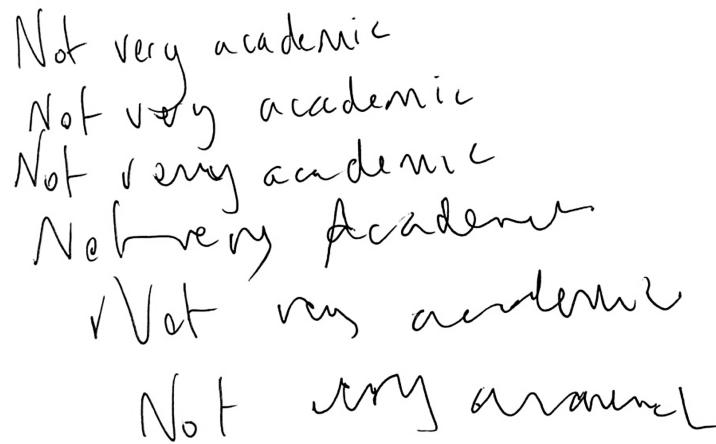 Not very academic
Not very academic
Not veruy academic
Not very Academic
Not very academic
Not very